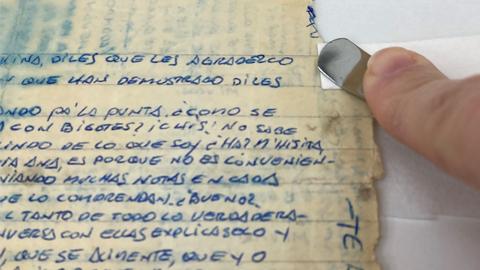 DILES QUE LES AGRADEZCO
QUE HAN DEMOSTRADO DILES
PA' LA PUNTA. ¿COMO SE
CON BIGOTES? ¡CHIS! NO SABE
LINDO DE LO QUE SOY ¿HA? M'HIJITA,
ANA, ES PORQUE NO ES CONVENIEN-
MUCHAS NOTAS EN CADA
LO COMPRENDAN. ¿BUENO?
TANTO DE TODO LO VERDADERA-
CON ELLAS EXPLICASELO Y
QUE SE ALIMENTE, QUE YO
-TE